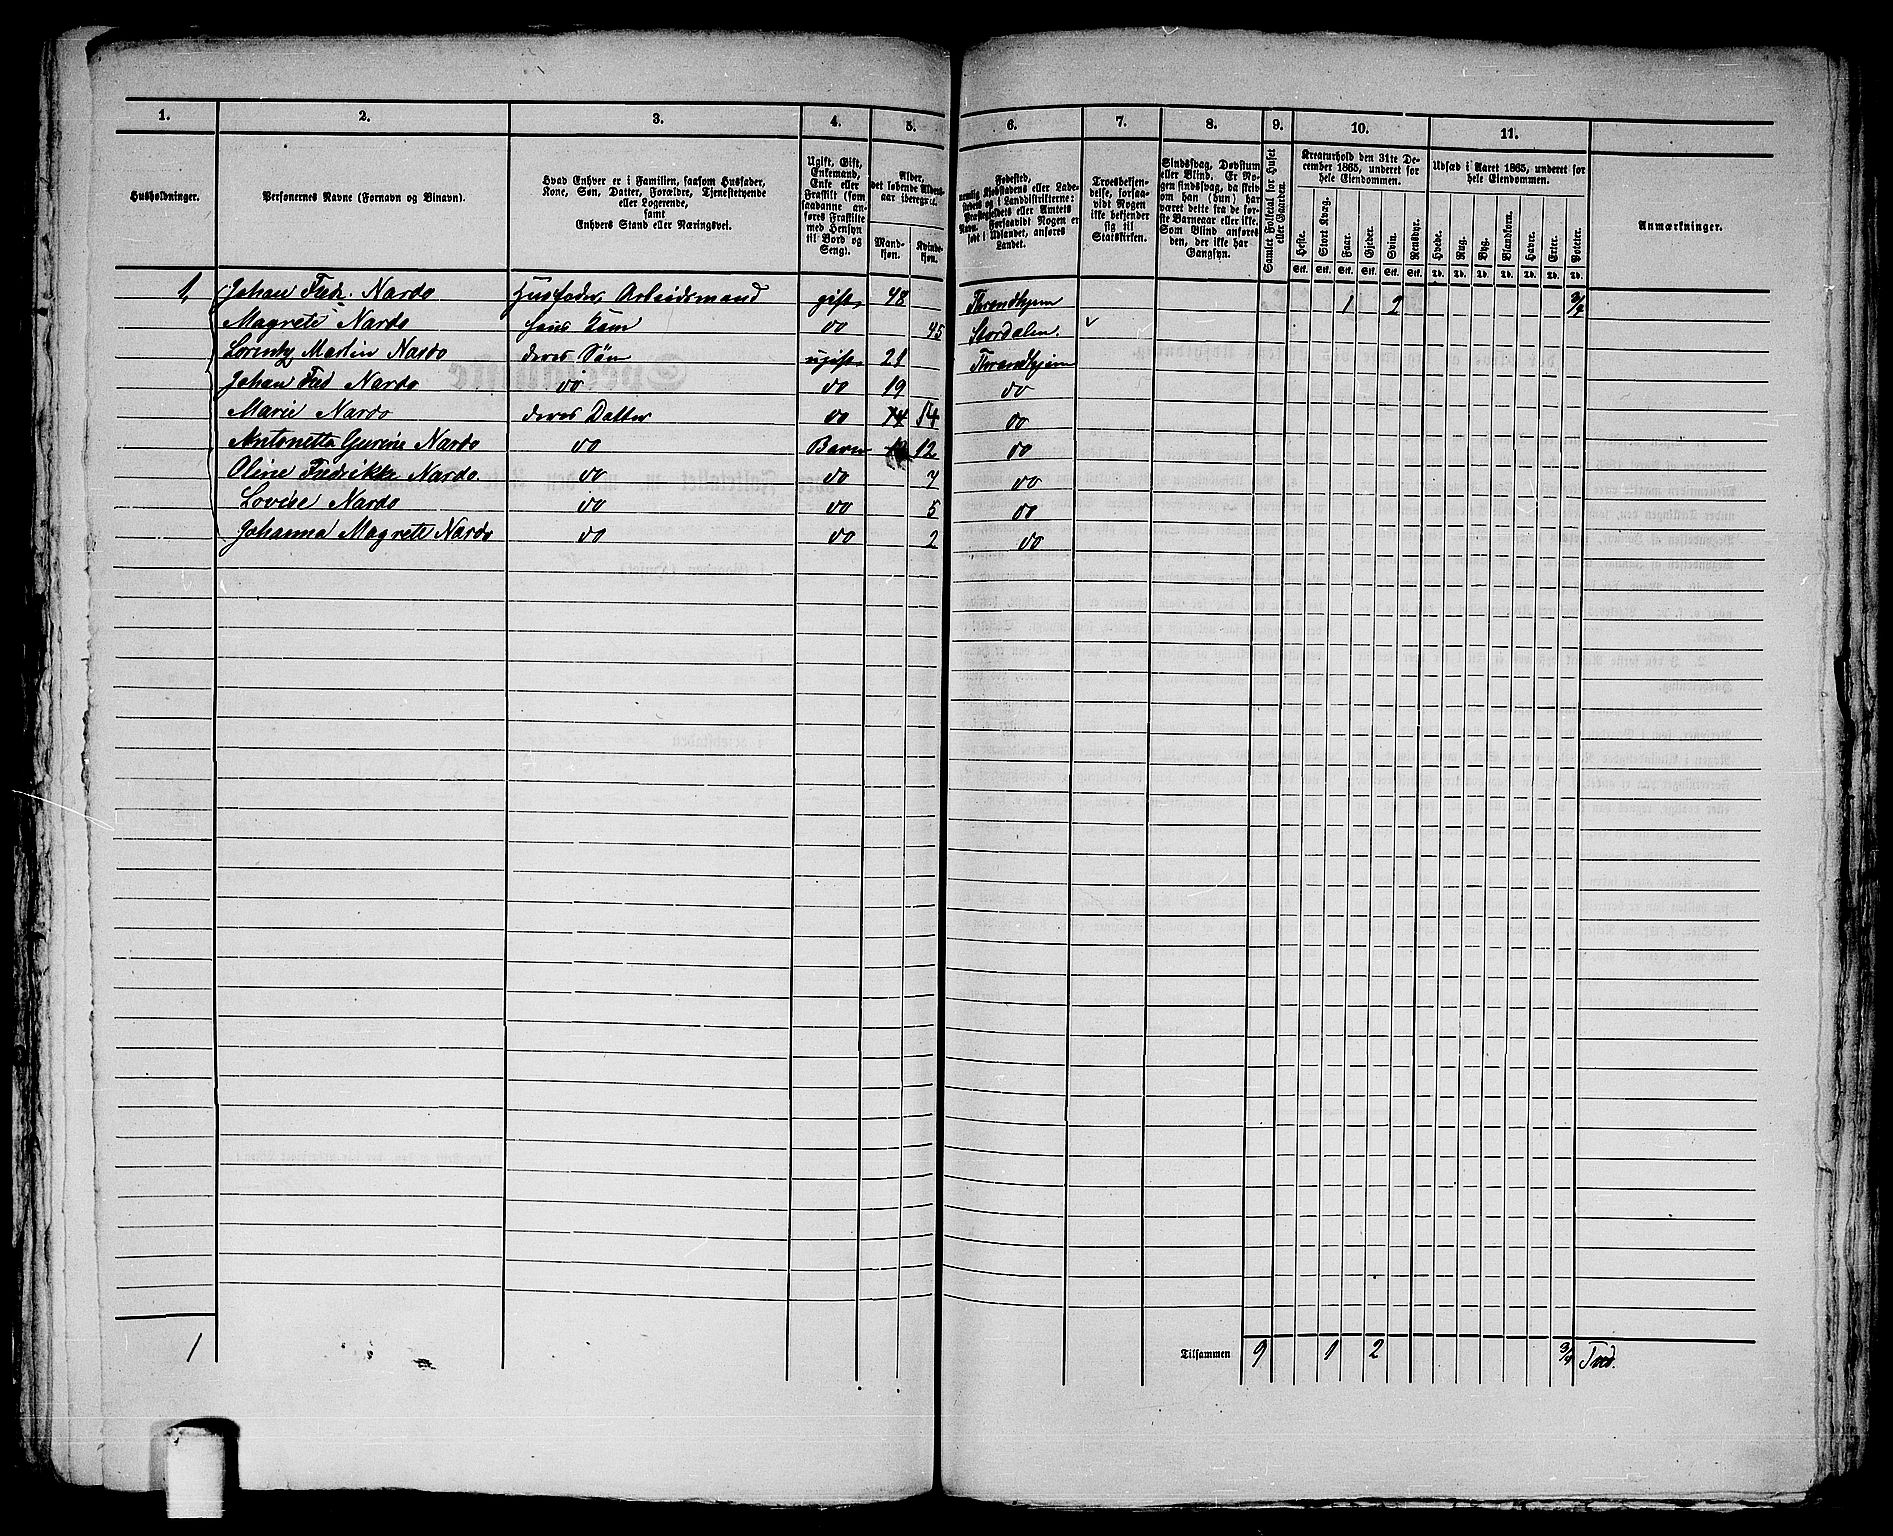 1. 2. 3. 4. 5. 6. 7. 8. 9. 10. 11.
Husholdninger.
Personernes Navne (Fornavn og Binavn).
Hvad Enhver er i Familien, saasom Husfader,
Kone, Søn, Datter, Forældre, Tjenestetyende
eller Logerende,
samt
Enhvers Stand eller Næringsvei.
Ugift, Gift,
Enkemand,
Enke eller
Fraskilt (som
saadanne an-
føres Fraskilte
med Hensyn
til Bord og
Seng).
Alder,
det løbende Alders-
aar iberegnet.
Mand-
kjøn.
Kvinde-
kjøn.
Fødested,
nemlig Kjøbstadens eller Lade-
stedets og i Landdistrikterne:
Præstegjeldets eller Amtets
Navn. Forsaavidt Nogen er
født i Udlandet, anføres
Landet.
Troesbekjen-
delse, forsaa-
vidt Nogen
ikke bekjender
sig til
Statskirken.
Sindssvag, Døvstum
eller Blind. Er No-
gen sindssvag, da skriv
om han (hun) har
været dette fra de før-
ste Barneaar eller ikke.
Som Blind anføres
den, der ikke har
Gangsyn.
Samlet Folketal for Huset
eller Gaarden.
Kreaturhold den 31te De-
cember 1865, underet for
hele Eiendommen.
Heste. Stort Kvæg. Faar. Gjeder. Svin. Rensdyr.
Stk. Stk. Stk. Stk. Stk. Stk.
Udsæd i Aaret 1865, underet for
hele Eiendommen.
Hvede. Rug. Byg. Blandkorn. Havre. Erter. Poteter.
Td. Td. Td. Td. Td. Td. Td.
Anmærkninger.
1, Johan Fred. Nardo Husfader Arbeidsmand gift 48 Throndhjem 1 2 3/4
Magrete Nardo hans Kone do 45 Stordalen
Lorentz Martin Nardo deres Søn ugift 21 Throndhjem
Johan Fred Nardo do do 19 do
Marie Nardo deres Datter do 14 14 do
Antonetta Gurine Nardo do Barn 12 do
Oline Fredrikke Nardo do do 7 do
Lovise Nardo do do 5 do
Johanna Magrete Nardo do do 2 do
1 Tilsammen 9 1 2 3/4 Tved.